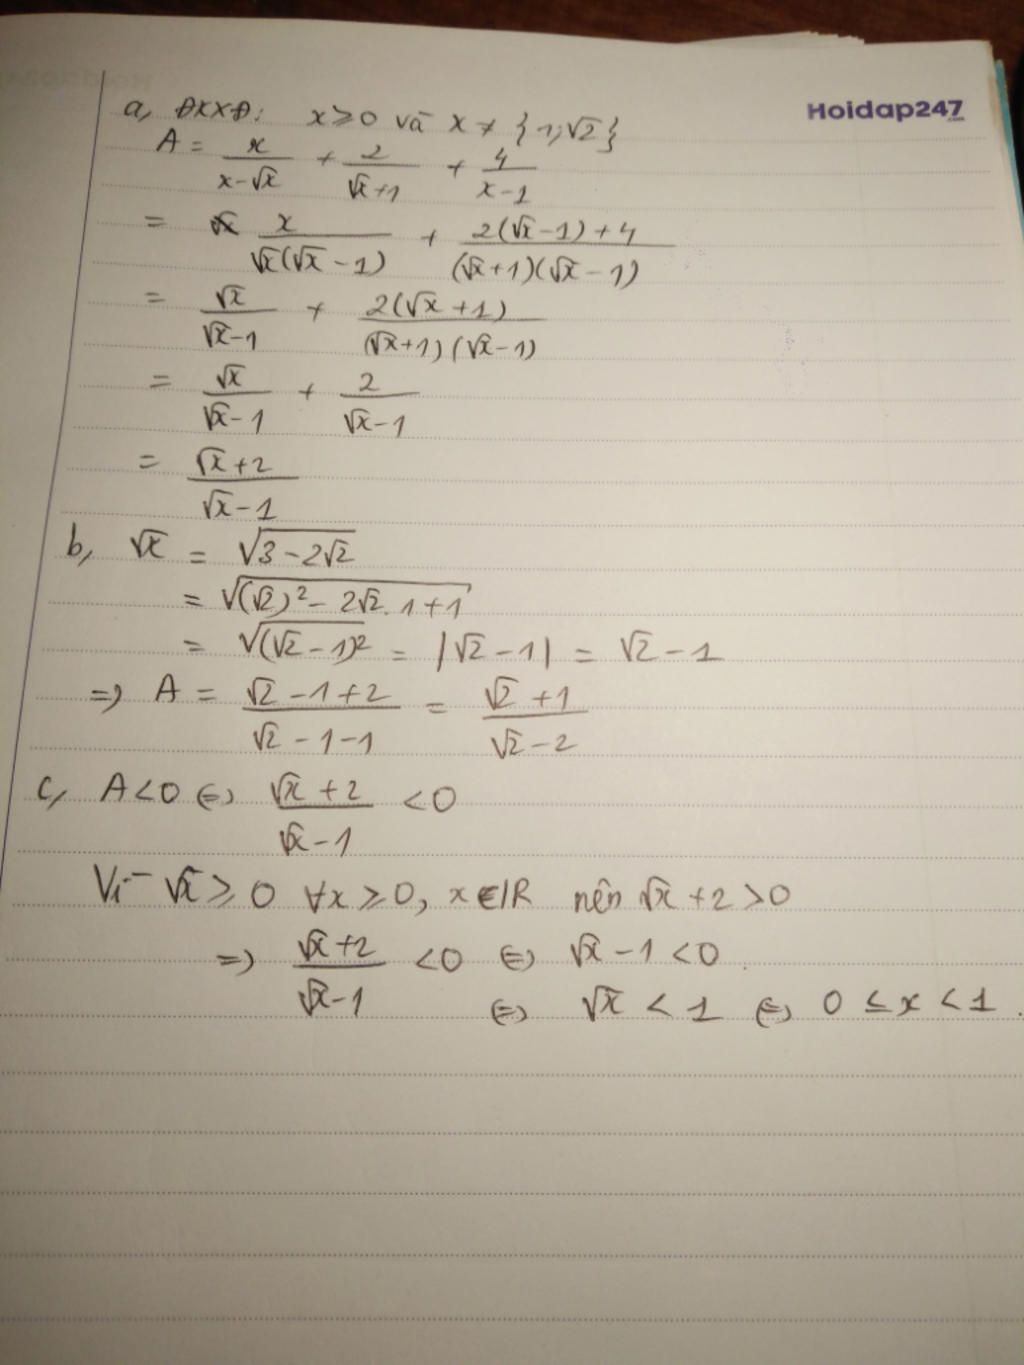 Hoidap247
.com
a, ĐKXĐ: x ≥ 0 và x ≠ {1; √2}
A = x/(x-√x) + 2/(√x+1) + 4/(x-1)
= x/(√x(√x-1)) + (2(√x-1)+4)/((√x+1)(√x-1))
= √x/(√x-1) + 2(√x+1)/((√x+1)(√x-1))
= √x/(√x-1) + 2/(√x-1)
= (√x+2)/(√x-1)
b, √x = √(3-2√2)
= √((√2)²-2√2.1+1)
= √((√2-1)²) = |√2-1| = √2-1
=> A = (√2-1+2)/(√2-1-1) = (√2+1)/(√2-2)
c, A<0 <=> (√x+2)/(√x-1) <0
Vì √x ≥ 0 ∀x ≥ 0, x ∈ IR nên √x+2>0
=> (√x+2)/(√x-1) <0 <=> √x-1<0
<=> √x < 1 <=> 0 ≤ x < 1.